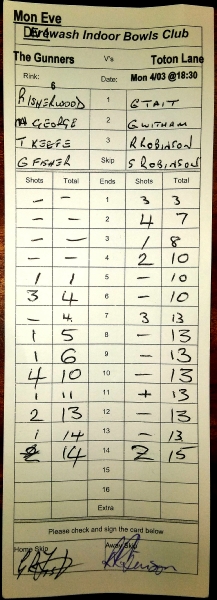 Mon Eve
Erewash Indoor Bowls Club
The Gunners V's Toton Lane
Rink: 6 Date: Mon 4/03 @18:30
R ISHERWOOD 1 G TAIT
M GEORGE 2 G WITHAM
T KEEFE 3 R ROBINSON
G FISHER Skip S ROBINSON
Shots Total Ends Shots Total
- - 1 3 3
- - 2 4 7
- - 3 1 8
- - 4 2 10
1 1 5 - 10
3 4 6 - 10
- 4. 7 3 13
1 5 8 - 13
1 6 9 - 13
4 10 10 - 13
1 11 11 - 13
2 13 12 - 13
1 14 13 - 13
14 14 2 15
15
16
Extra
Please check and sign the card below
Home Skip Away Skip